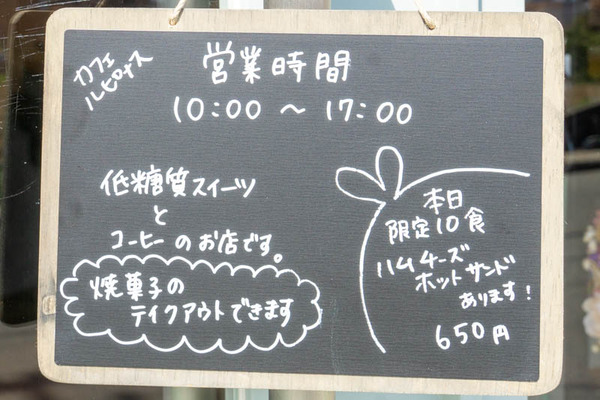 カフェ
ルピナス
営業時間
10:00 〜 17:00
低糖質スイーツ
と
コーヒーのお店です。
焼菓子の
テイクアウトできます
本日
限定10食
ハムチーズ
ホットサンド
あります!
650円